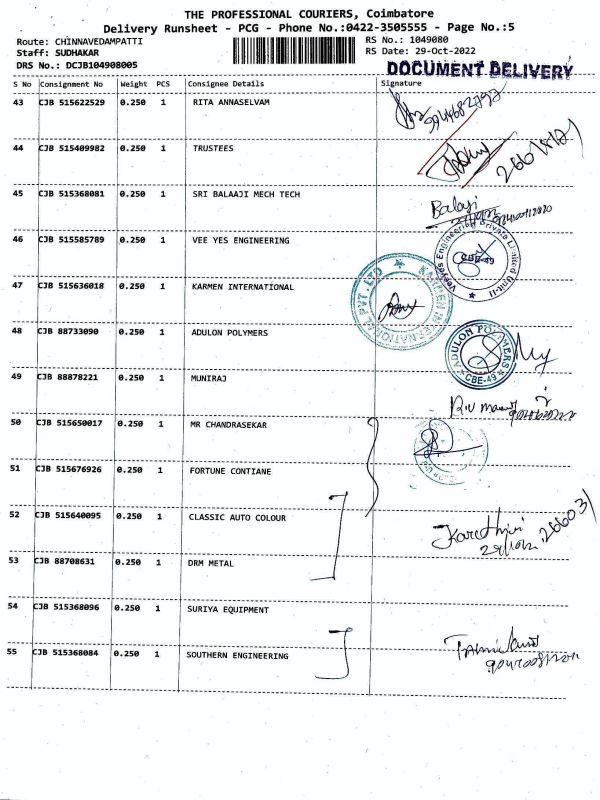 THE PROFESSIONAL COURIERS, Coimbatore
Delivery Runsheet - PCG - Phone No.:0422-3505555 - Page No.:5
Route: CHINNAVEDAMPATTI RS No.: 1049080
Staff: SUDHAKAR RS Date: 29-Oct-2022
DRS No.: DCJB104908005 DOCUMENT DELIVERY
S No Consignment No Weight PCS Consignee Details Signature
43 CJB 515622529 0.250 1 RITA ANNASELVAM
44 CJB 515409982 0.250 1 TRUSTEES
45 CJB 515368081 0.250 1 SRI BALAAJI MECH TECH Balaji
46 CJB 515585789 0.250 1 VEE YES ENGINEERING
Veeyes Engineering Private Limited Unit-II
CBE-49
47 CJB 515636018 0.250 1 KARMEN INTERNATIONAL
KARMEN INTERNATIONAL PVT. LTD
48 CJB 88733090 0.250 1 ADULON POLYMERS
ADULON POLYMERS
CBE-49
49 CJB 88878221 0.250 1 MUNIRAJ
50 CJB 515650017 0.250 1 MR CHANDRASEKAR
51 CJB 515676926 0.250 1 FORTUNE CONTIANE
52 CJB 515640095 0.250 1 CLASSIC AUTO COLOUR
53 CJB 88708631 0.250 1 DRM METAL
54 CJB 515368096 0.250 1 SURIYA EQUIPMENT
55 CJB 515368084 0.250 1 SOUTHERN ENGINEERING